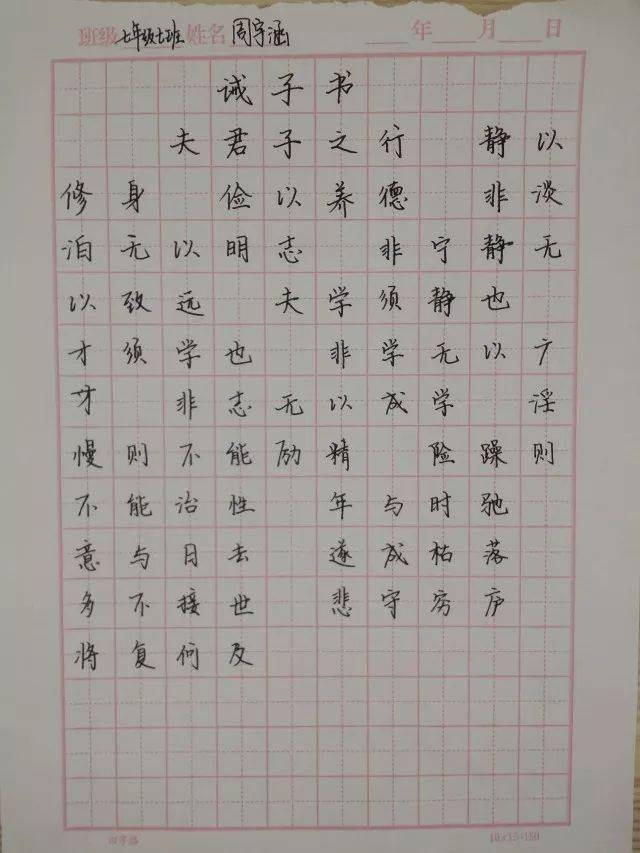 班级 七年级七班 姓名 周宇涵 年 月 日
诫子书
夫君子之行 静以
修身 俭以养德 非淡
泊无以明志 非宁静无
以致远 夫学须静也
才须学也 非学无以广
才 非志无以成学 淫
慢则不能励精 险躁则
不能治性 年与时驰
意与日去 遂成枯落
多不接世 悲守穷庐
将复何及
10×15=150